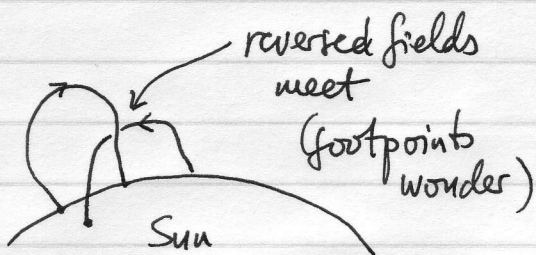 reversed fields
meet
(footpoints
wonder)
Sun